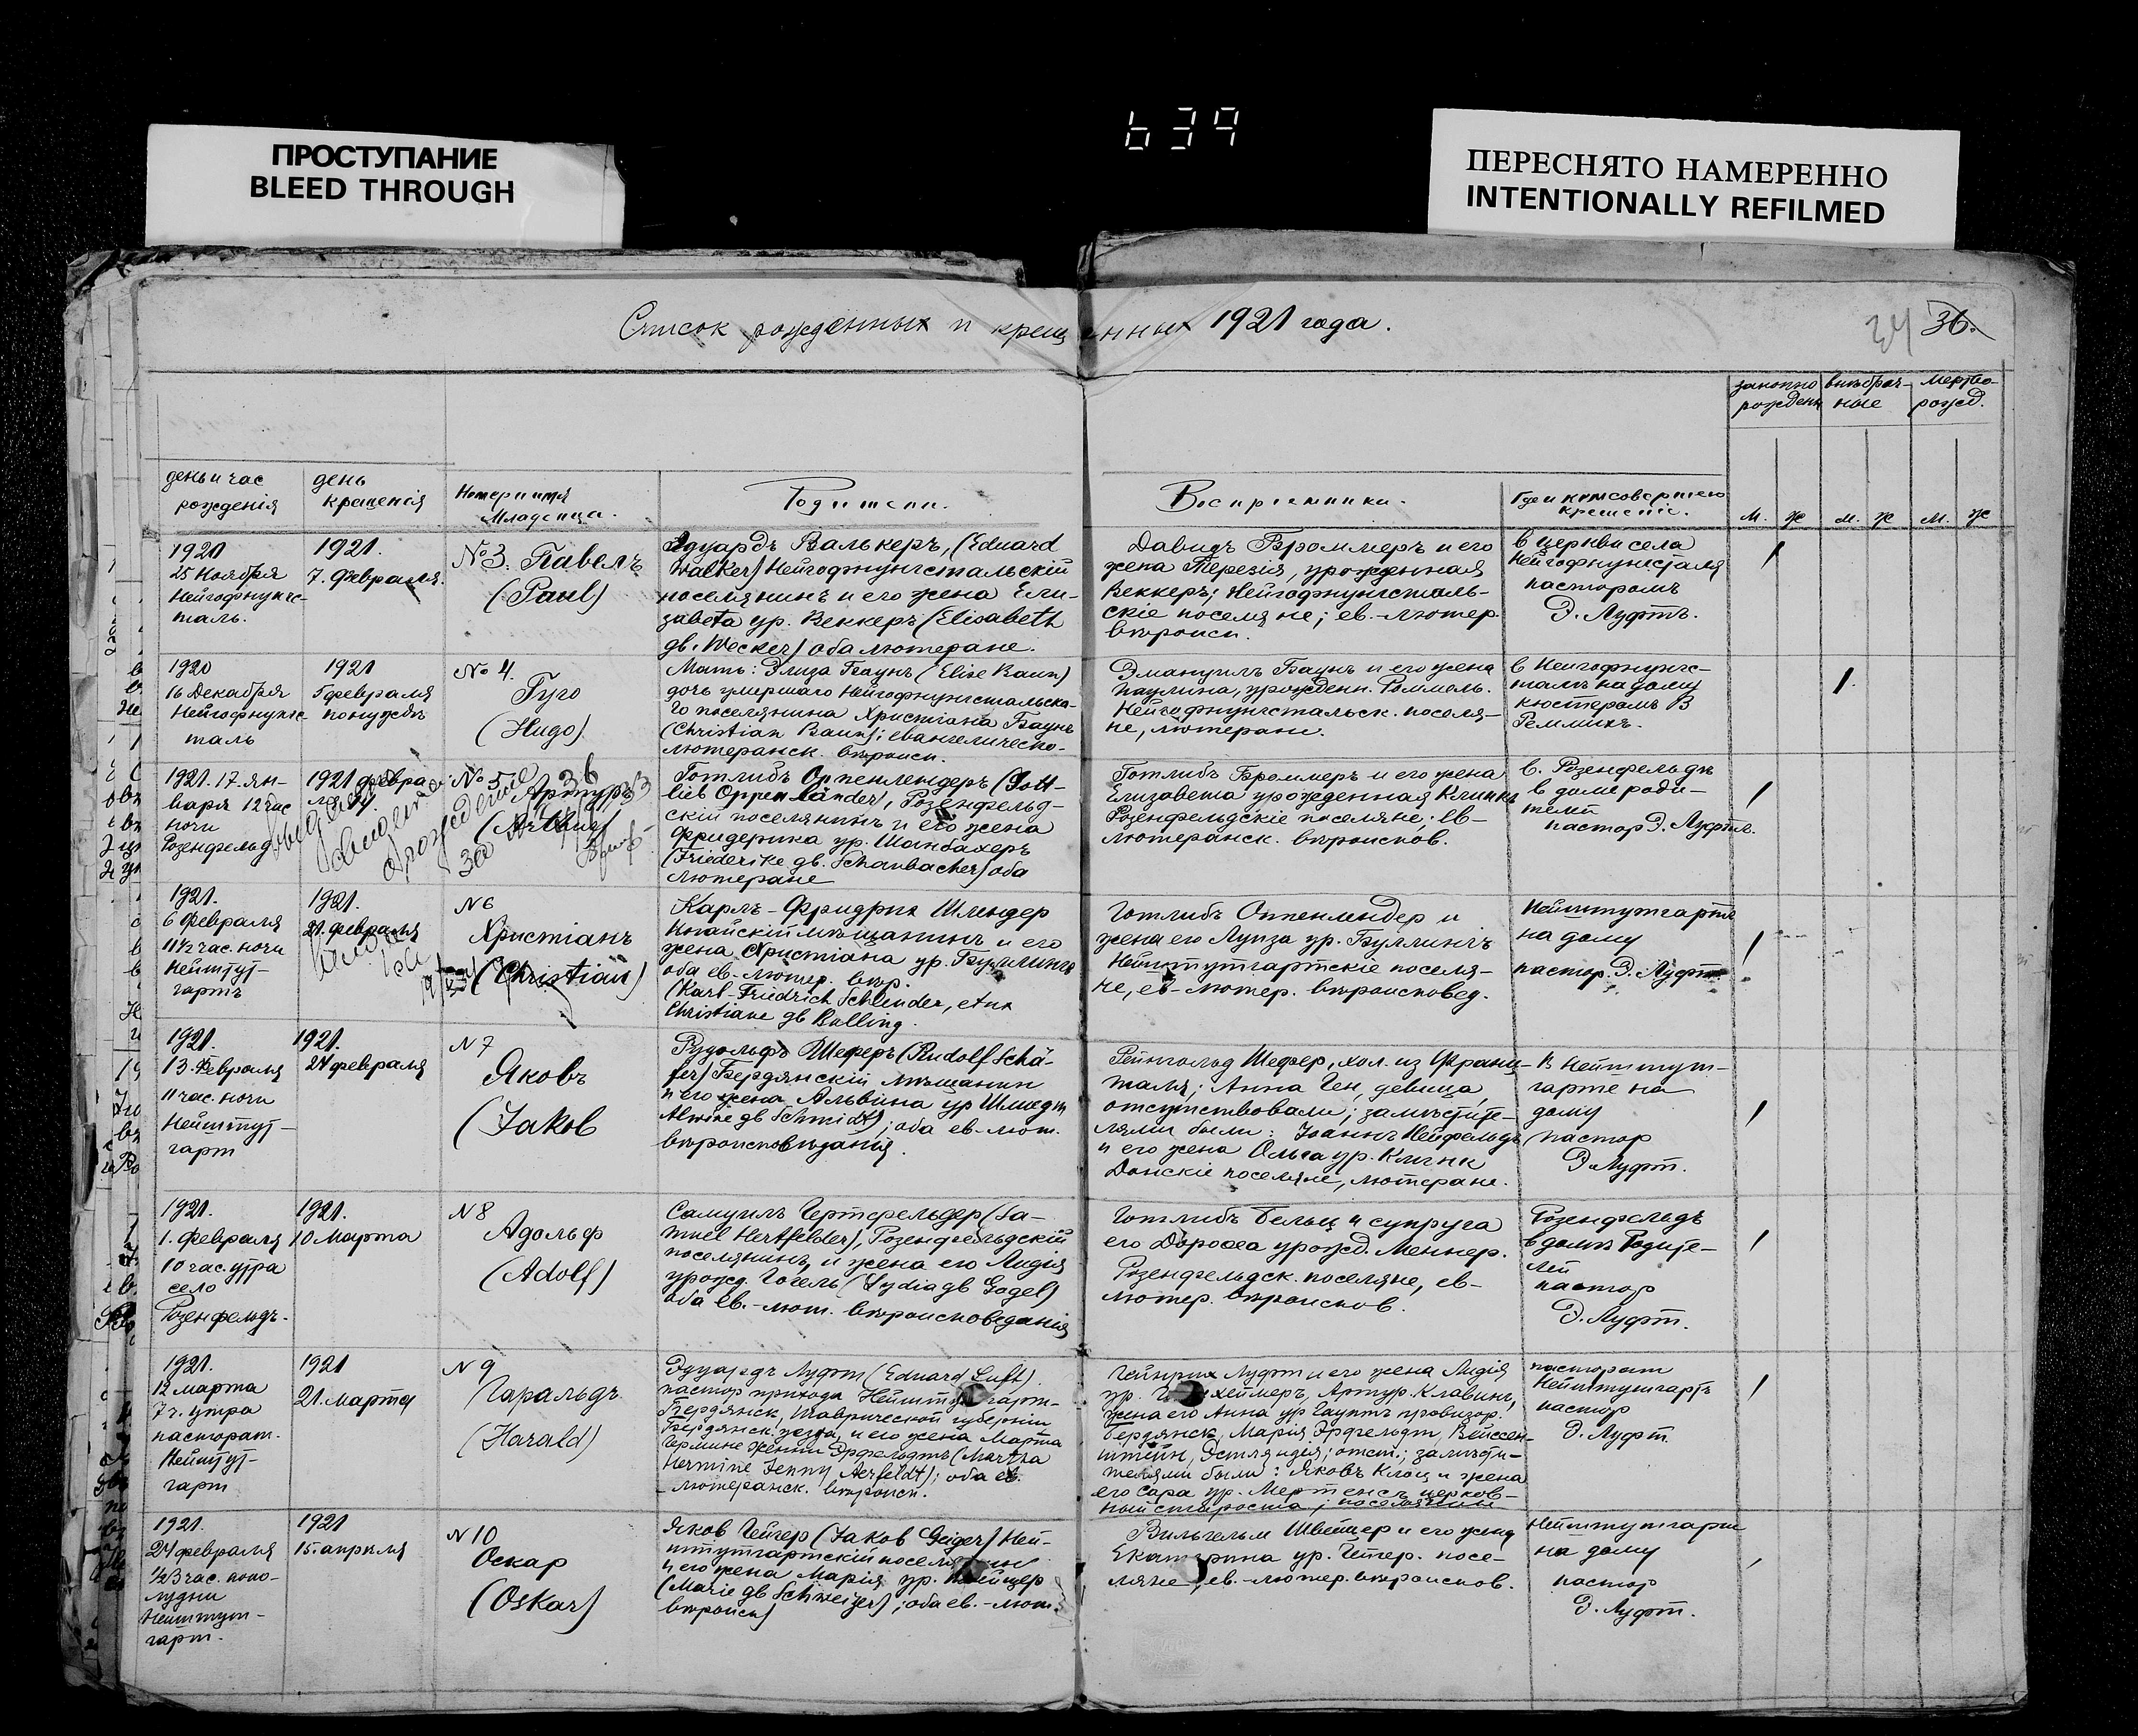 ПРОСТУПАНИЕ
BLEED THROUGH
639
ПЕРЕСНЯТО НАМЕРЕННО
INTENTIONALLY REFILMED
Список рожденных и крещенных 1921 года.
34 36.
законно рожден
внѣбрач-ные
мертво-рожд.
день и час рожденія
день крещенія
Номер и имя Младенца.
Родители.
Воспріемники.
Где и кем совершено крещеніе.
м. ж м. ж м. ж
1920
25 Ноября
Нейгофнунгс-
таль.
1921.
7. Февраля.
№3. Павелъ
(Paul)
Эдуардъ Валькеръ, (Eduard
Walker) Нейгофнунгстальскій
поселянинъ и его жена Ели-
завета ур. Веккеръ (Elisabeth
gb. Wecker) оба лютеране.
Давидъ Броммеръ и его
жена Терезія, урожденная
Веккеръ; Нейгофнунгсталь-
скіе поселяне; ев.-лютер.
вѣроисп.
в церкви села
Нейгофнунгсталя
пасторомъ
Э. Луфтъ.
1920
16 Декабря
Нейгофнунгс-
таль
1921
5 февраля
по нуждѣ
№ 4.
Гуго
(Hugo)
Мать: Элиза Баунъ (Elise Baun)
дочь умершаго Нейгофнунгстальска-
го поселянина Христіана Баунъ
(Christian Baun); евангелическо-
лютеранск. вѣроисп.
Эмануилъ Баунъ и его жена
Паулина, урожденн. Роммель.
Нейгофнунгстальск. поселя-
не, лютеране.
в Нейгофнунгс-
талѣ на дому
кюстеромъ В
Реммихъ.
1921. 17 ян-
варя 12 час
ночи
Розенфельд
1921 февра
№ 5
Артуръ
(Arthur)
Готлибъ Оппенлендеръ (Gott-
lieb Oppenländer), Розенфельд-
скій поселянинъ и его жена
Фридерика ур. Шанбахеръ
(Friederike gb. Schanbacher) оба
лютеране
Готлибъ Броммеръ и его жена
Елизавета урожденная Клинкъ
Розенфельдскіе поселяне; ев-
лютеранск. вѣроисков.
в. Розенфельдѣ
в доме роди-
телей
пастор Э. Луфтъ.
1921.
6 февраля
11½ час. ночи
Нейштут-
гартъ
1921.
21. февраля
N 6
Христіанъ
(Christian)
Карлъ-Фридрих Шлендер
мѣщанинъ и его
жена Христіана ур. Буллингъ
оба ев.-лютер. вѣр.
(Karl-Friedrich Schlender,
Christiane gb Bulling.
Готлибъ Оппенлендер и
жена его Луиза ур. Буллингъ
Нейштутгартскіе поселя-
не, ев-лютер. вѣроисповед.
Нейштутгартѣ
на дому
пастор. Э. Луфтъ
1921.
13. Февраля
11 час. ночи
Нейштут-
гарт
1921.
24 февраля
N 7
Яковъ
(Jakob
Рудольфъ Шеферъ (Rudolf Schä-
fer) Бердянскій мѣщанин
и его жена Альвина ур Шмидт
Alwine gb Schmidt); оба ев-лют.
вѣроисповѣданія.
Рейнгольд Шефер, хол. из Франц-
таля; Анна Ген, девица,
отсутствовали; замѣстите-
лями были: Іоаннъ Нейфельдъ
и его жена Ольга ур. Клинк
Донскіе поселяне, лютеране.
В Нейштут-
гарте на
дому
пастор
Э Луфт.
1921.
1. февраля
10 час. утра
село
Розенфельдъ.
1921.
10 Марта
N 8
Адольф
(Adolf)
Самуилъ Гертфельдер (Sa-
muel Hertfelder), Розенфельдскій
поселянинъ, и жена его Лидія
урожд. Гогель (Lydia gb Gogel)
оба ев.-лют. вѣроисповеданія
Готлибъ Бельц и супруга
его Доросеа урожд. Меннер.
Розенфельдск. поселяне, ев-
лютер. вѣроисков.
Розенфельдъ
в домѣ Родите-
лей
пастор
Э. Луфт.
1921.
12 марта
7 ч. утра
пасторат.
Нейштут-
гарт
1921
21. Марта
N 9
Гаральдъ
(Harald)
Эдуардъ Луфт (Eduard Luft).
пастор прихода Нейштутгарт-
Бердянск, Таврической губерніи
Бердянск. уезда, и его жена Марта
Гермине Женни Эрфельдтъ (Martha
Hermine Jenny Aerfeldt); оба ев.
-лютеранск. вѣроисп.
Гейнрих Луфт и его жена Лидія
хеймеръ, Артур. Клавинъ,
жена его Анна ур Гауптъ провизор.
Бердянск, Марія Эрфельдт, Вейссен-
штейн, Эстляндія; отст.; замѣсти-
телями были: Яковъ Клоц и жена
его Сара ур. Мертенсъ церков-
ный староста; поселянин
пасторат
Нейштутгартъ
пастор
Э. Луфт
1921.
24 февраля
½3 час. попо-
лудни
Нейштут-
гарт.
1921
15. апреля
N 10
Оскар
(Oskar)
Яков Гейгер (Jakob Geiger) Ней-
штутгартскій поселянин
и его жена Марія ур. Швейцер
(Marie gb Schweizer); оба ев.-лют.
вѣроисп)
Вильгельм Швейцер и его жена
Екатерина ур. Гетер. посе-
ляне, ев.-лютер. вѣроисков.
Нейштутгарт
на дому
пастор
Э. Луфт.